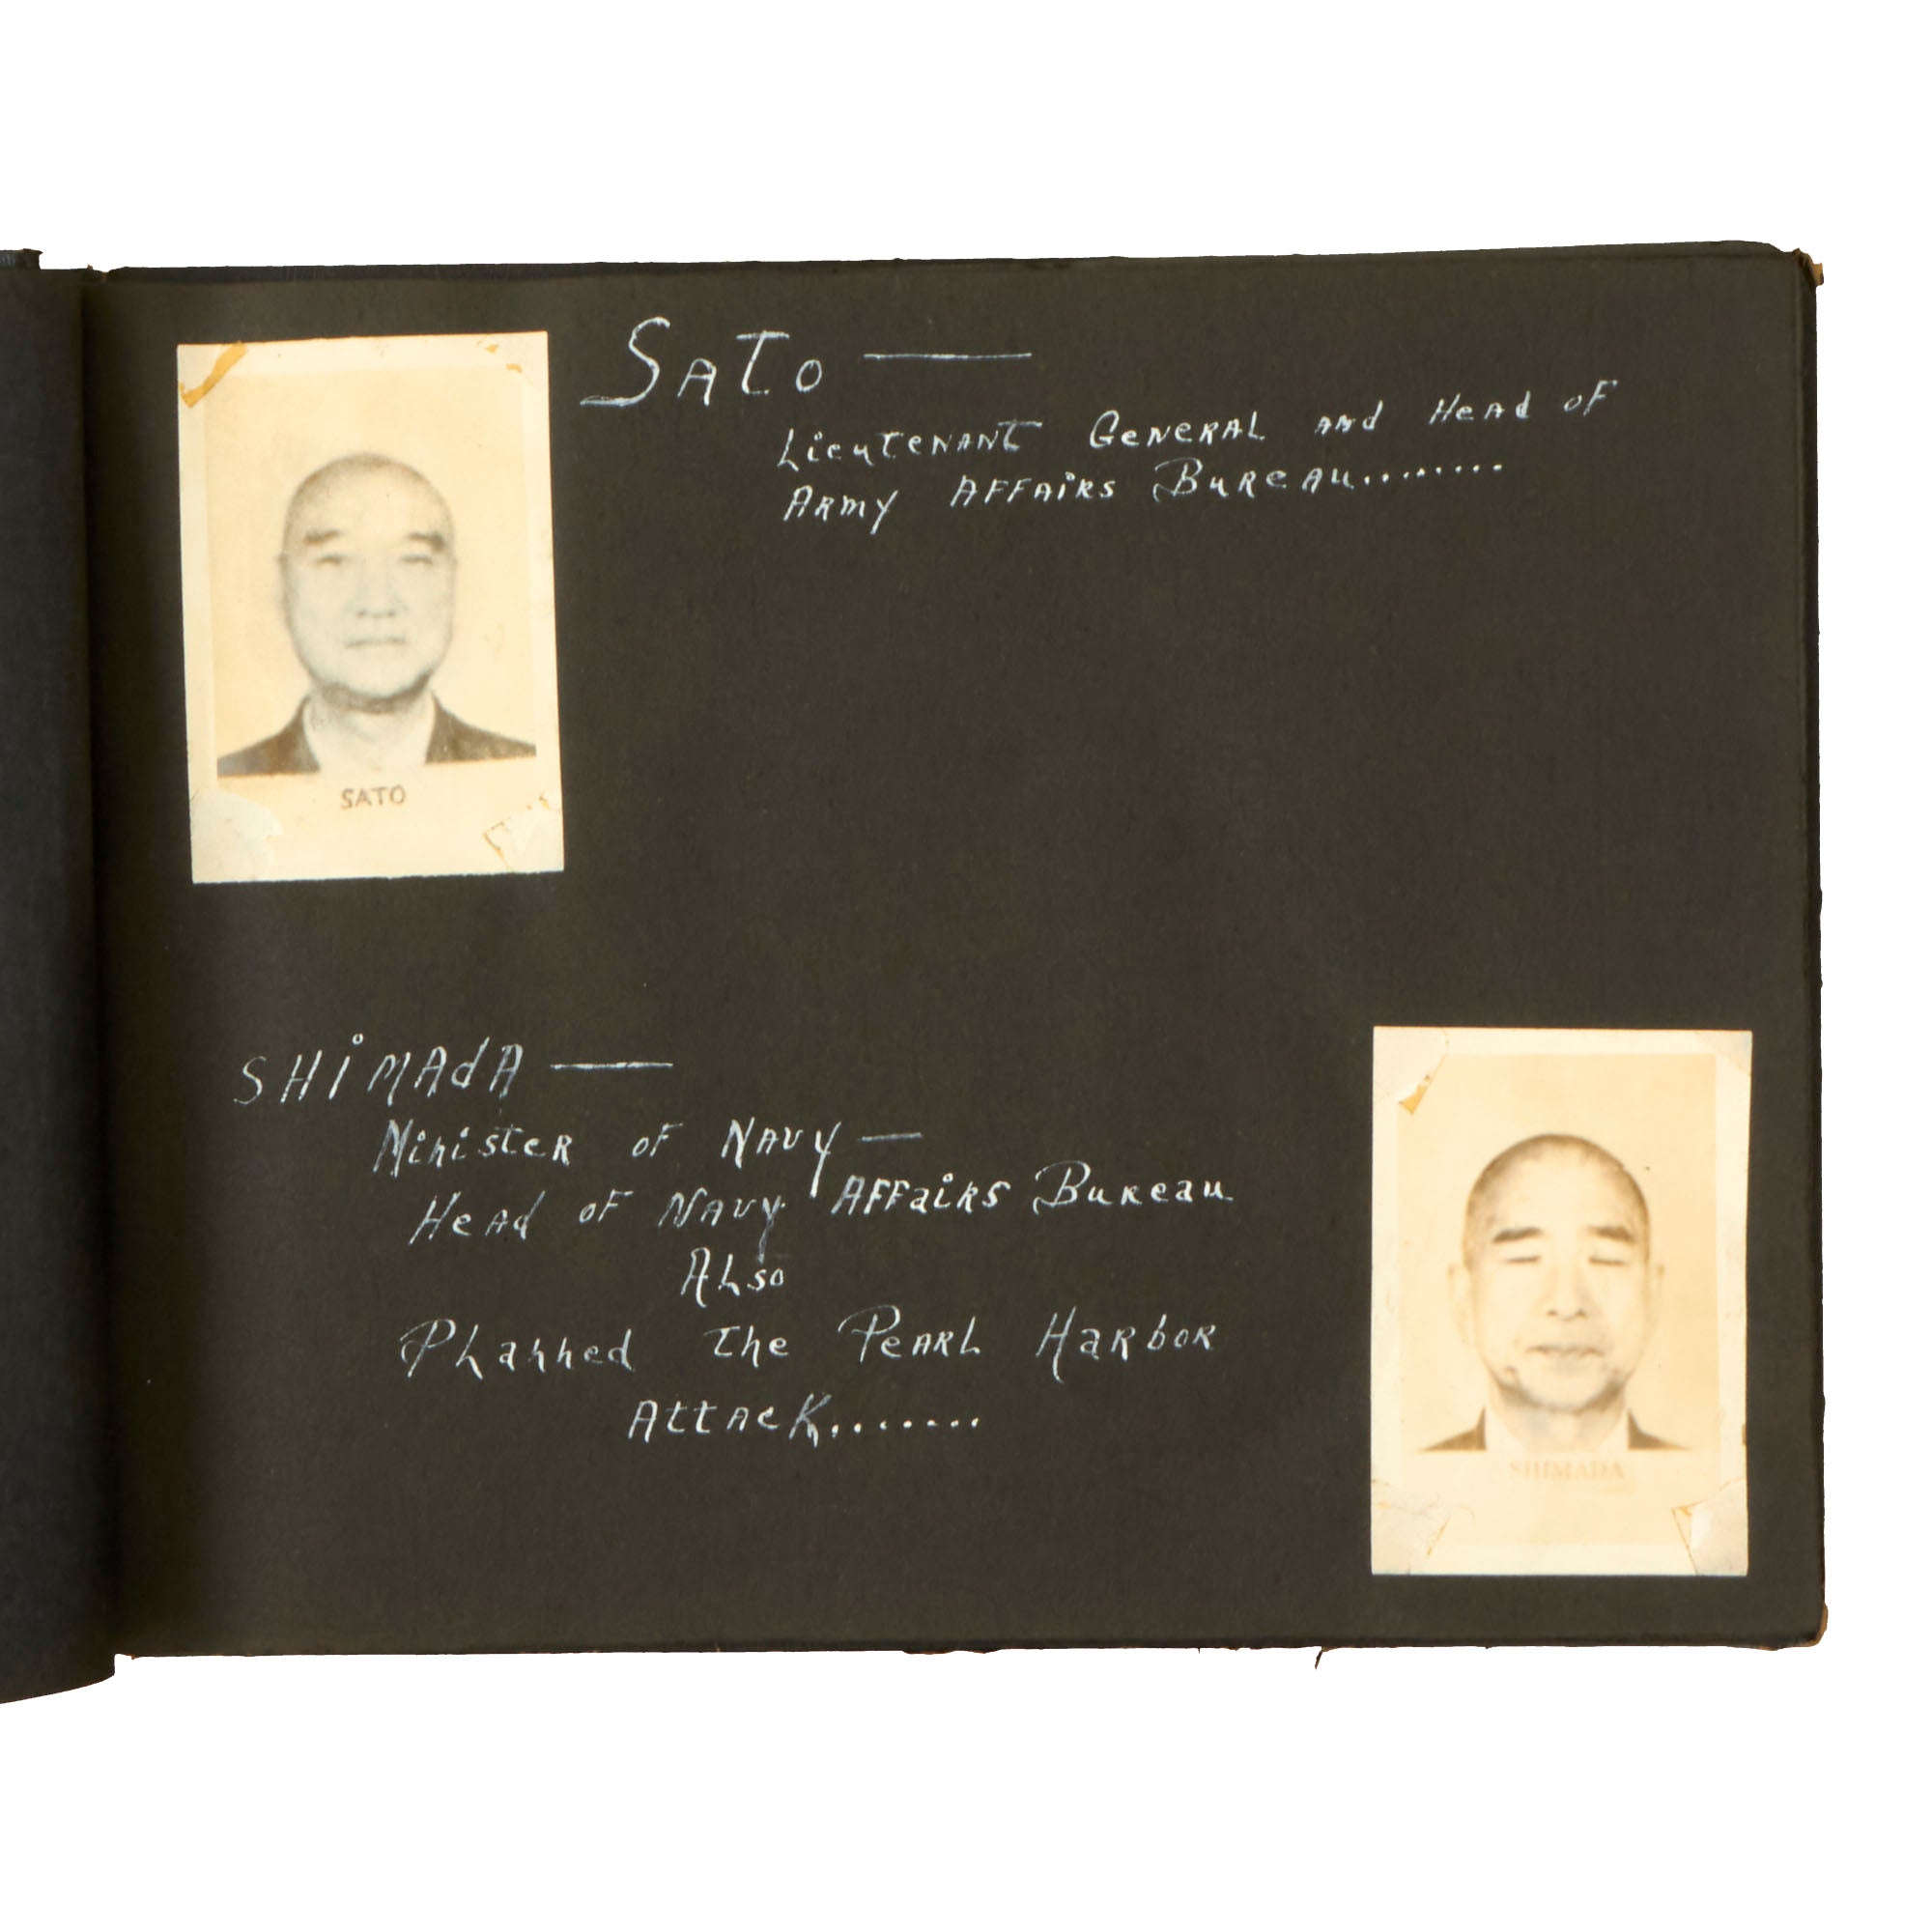 SATO —
Lieutenant General and Head of
Army Affairs Bureau........
SATO
SHiMAdA —
Minister of Navy —
Head of Navy Affairs Bureau
Also
Planned the Pearl Harbor
Attack.......
SHIMADA